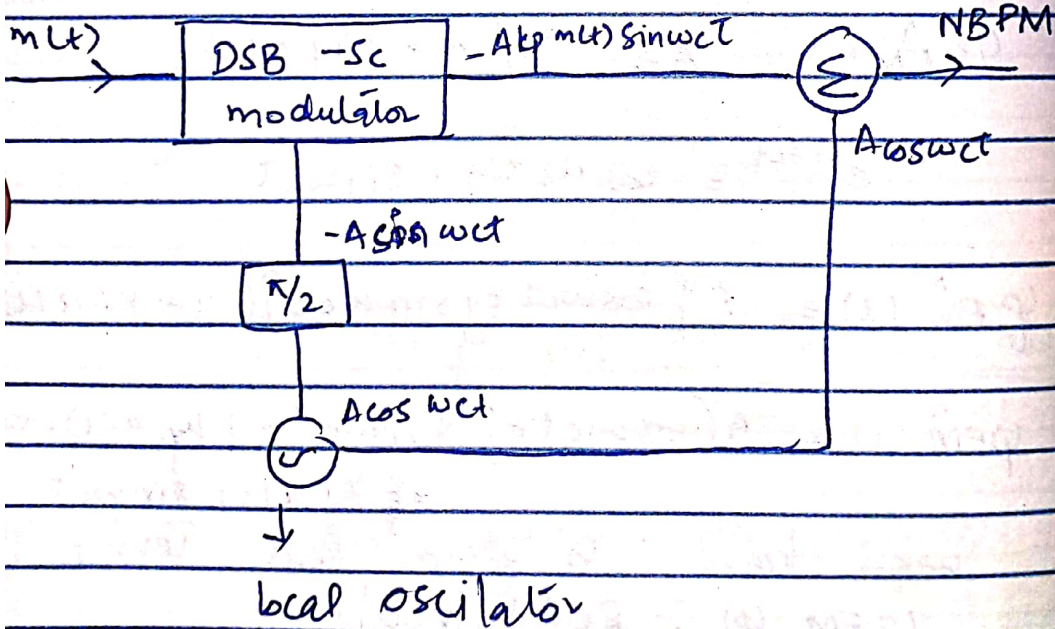 m(t)
DSB -Sc
modulator
-Akp m(t) Sinwct
Σ
NBPM
Acoswct
-Asin wct
π/2
Acos wct
local oscilator